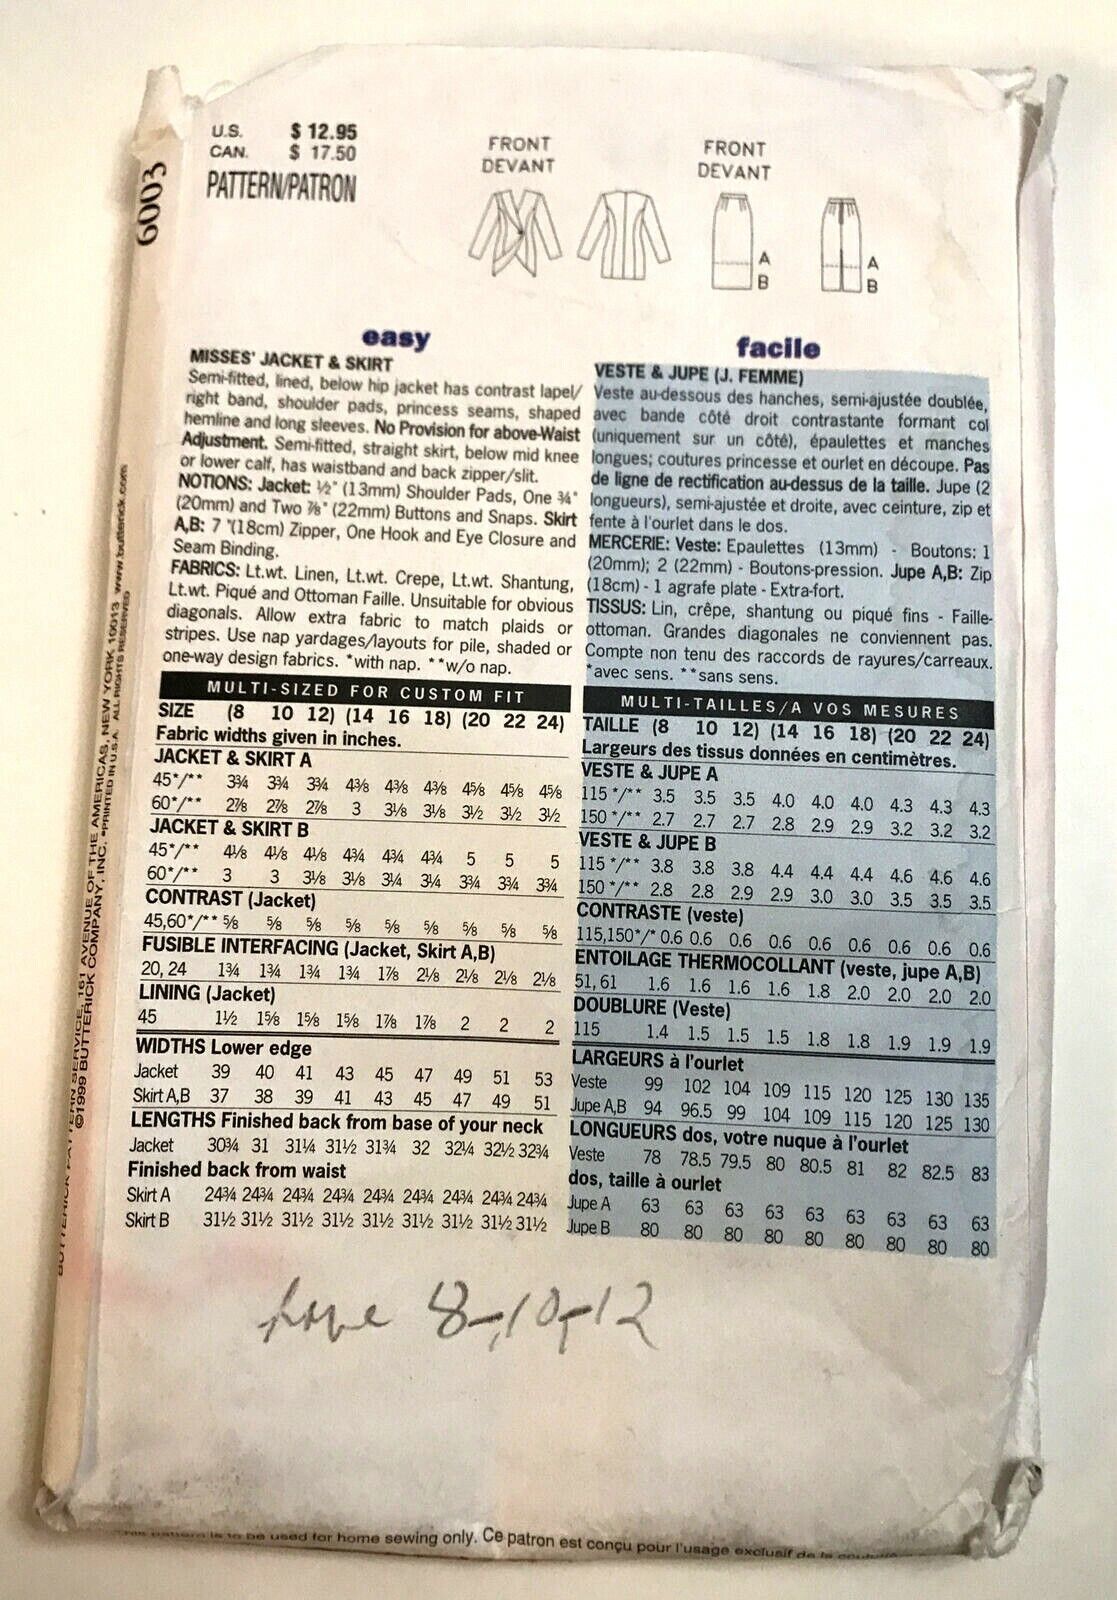 6003
U.S. $ 12.95
CAN. $ 17.50
PATTERN/PATRON
FRONT
DEVANT
FRONT
DEVANT
A
B
A
B
easy
MISSES' JACKET & SKIRT
Semi-fitted, lined, below hip jacket has contrast lapel/
right band, shoulder pads, princess seams, shaped
hemline and long sleeves. No Provision for above-Waist
Adjustment. Semi-fitted, straight skirt, below mid knee
or lower calf, has waistband and back zipper/slit.
NOTIONS: Jacket: ½" (13mm) Shoulder Pads, One ¾"
(20mm) and Two ⅞" (22mm) Buttons and Snaps. Skirt
A,B: 7 "(18cm) Zipper, One Hook and Eye Closure and
Seam Binding.
FABRICS: Lt.wt. Linen, Lt.wt. Crepe, Lt.wt. Shantung,
Lt.wt. Piqué and Ottoman Faille. Unsuitable for obvious
diagonals. Allow extra fabric to match plaids or
stripes. Use nap yardages/layouts for pile, shaded or
one-way design fabrics. *with nap. **w/o nap.
MULTI-SIZED FOR CUSTOM FIT
SIZE (8 10 12) (14 16 18) (20 22 24)
Fabric widths given in inches.
JACKET & SKIRT A
45*/** 3¾ 3¾ 3¾ 4⅜ 4⅜ 4⅜ 4⅝ 4⅝ 4⅝
60*/** 2⅞ 2⅞ 2⅞ 3 3⅛ 3⅛ 3½ 3½ 3½
JACKET & SKIRT B
45*/** 4⅛ 4⅛ 4⅛ 4¾ 4¾ 4¾ 5 5 5
60*/** 3 3 3⅛ 3⅛ 3¼ 3¼ 3¾ 3¾ 3¾
CONTRAST (Jacket)
45,60*/** ⅝ ⅝ ⅝ ⅝ ⅝ ⅝ ⅝ ⅝ ⅝
FUSIBLE INTERFACING (Jacket, Skirt A,B)
20, 24 1¾ 1¾ 1¾ 1¾ 1⅞ 2⅛ 2⅛ 2⅛ 2⅛
LINING (Jacket)
45 1½ 1⅝ 1⅝ 1⅝ 1⅞ 1⅞ 2 2 2
WIDTHS Lower edge
Jacket 39 40 41 43 45 47 49 51 53
Skirt A,B 37 38 39 41 43 45 47 49 51
LENGTHS Finished back from base of your neck
Jacket 30¾ 31 31¼ 31½ 31¾ 32 32¼ 32½ 32¾
Finished back from waist
Skirt A 24¾ 24¾ 24¾ 24¾ 24¾ 24¾ 24¾ 24¾ 24¾
Skirt B 31½ 31½ 31½ 31½ 31½ 31½ 31½ 31½ 31½
facile
VESTE & JUPE (J. FEMME)
Veste au-dessous des hanches, semi-ajustée doublée,
avec bande côté droit contrastante formant col
(uniquement sur un côté), épaulettes et manches
longues; coutures princesse et ourlet en découpe. Pas
de ligne de rectification au-dessus de la taille. Jupe (2
longueurs), semi-ajustée et droite, avec ceinture, zip et
fente à l'ourlet dans le dos.
MERCERIE: Veste: Epaulettes (13mm) - Boutons: 1
(20mm); 2 (22mm) - Boutons-pression. Jupe A,B: Zip
(18cm) - 1 agrafe plate - Extra-fort.
TISSUS: Lin, crêpe, shantung ou piqué fins - Faille-
ottoman. Grandes diagonales ne conviennent pas.
Compte non tenu des raccords de rayures/carreaux.
*avec sens. **sans sens.
MULTI-TAILLES/A VOS MESURES
TAILLE (8 10 12) (14 16 18) (20 22 24)
Largeurs des tissus données en centimètres.
VESTE & JUPE A
115 */** 3.5 3.5 3.5 4.0 4.0 4.0 4.3 4.3 4.3
150 */** 2.7 2.7 2.7 2.8 2.9 2.9 3.2 3.2 3.2
VESTE & JUPE B
115 */** 3.8 3.8 3.8 4.4 4.4 4.4 4.6 4.6 4.6
150 */** 2.8 2.8 2.9 2.9 3.0 3.0 3.5 3.5 3.5
CONTRASTE (veste)
115,150*/* 0.6 0.6 0.6 0.6 0.6 0.6 0.6 0.6 0.6
ENTOILAGE THERMOCOLLANT (veste, jupe A,B)
51, 61 1.6 1.6 1.6 1.6 1.8 2.0 2.0 2.0 2.0
DOUBLURE (Veste)
115 1.4 1.5 1.5 1.5 1.8 1.8 1.9 1.9 1.9
LARGEURS à l'ourlet
Veste 99 102 104 109 115 120 125 130 135
Jupe A,B 94 96.5 99 104 109 115 120 125 130
LONGUEURS dos, votre nuque à l'ourlet
Veste 78 78.5 79.5 80 80.5 81 82 82.5 83
dos, taille à ourlet
Jupe A 63 63 63 63 63 63 63 63 63
Jupe B 80 80 80 80 80 80 80 80 80
BUTTERICK PATTERN SERVICE, 161 AVENUE OF THE AMERICAS, NEW YORK 10013 www.butterick.com
©1999 BUTTERICK COMPANY, INC. •PRINTED IN U.S.A. ALL RIGHTS RESERVED
8-10-12
this pattern is to be used for home sewing only. Ce patron est conçu pour l'usage exclusif de la